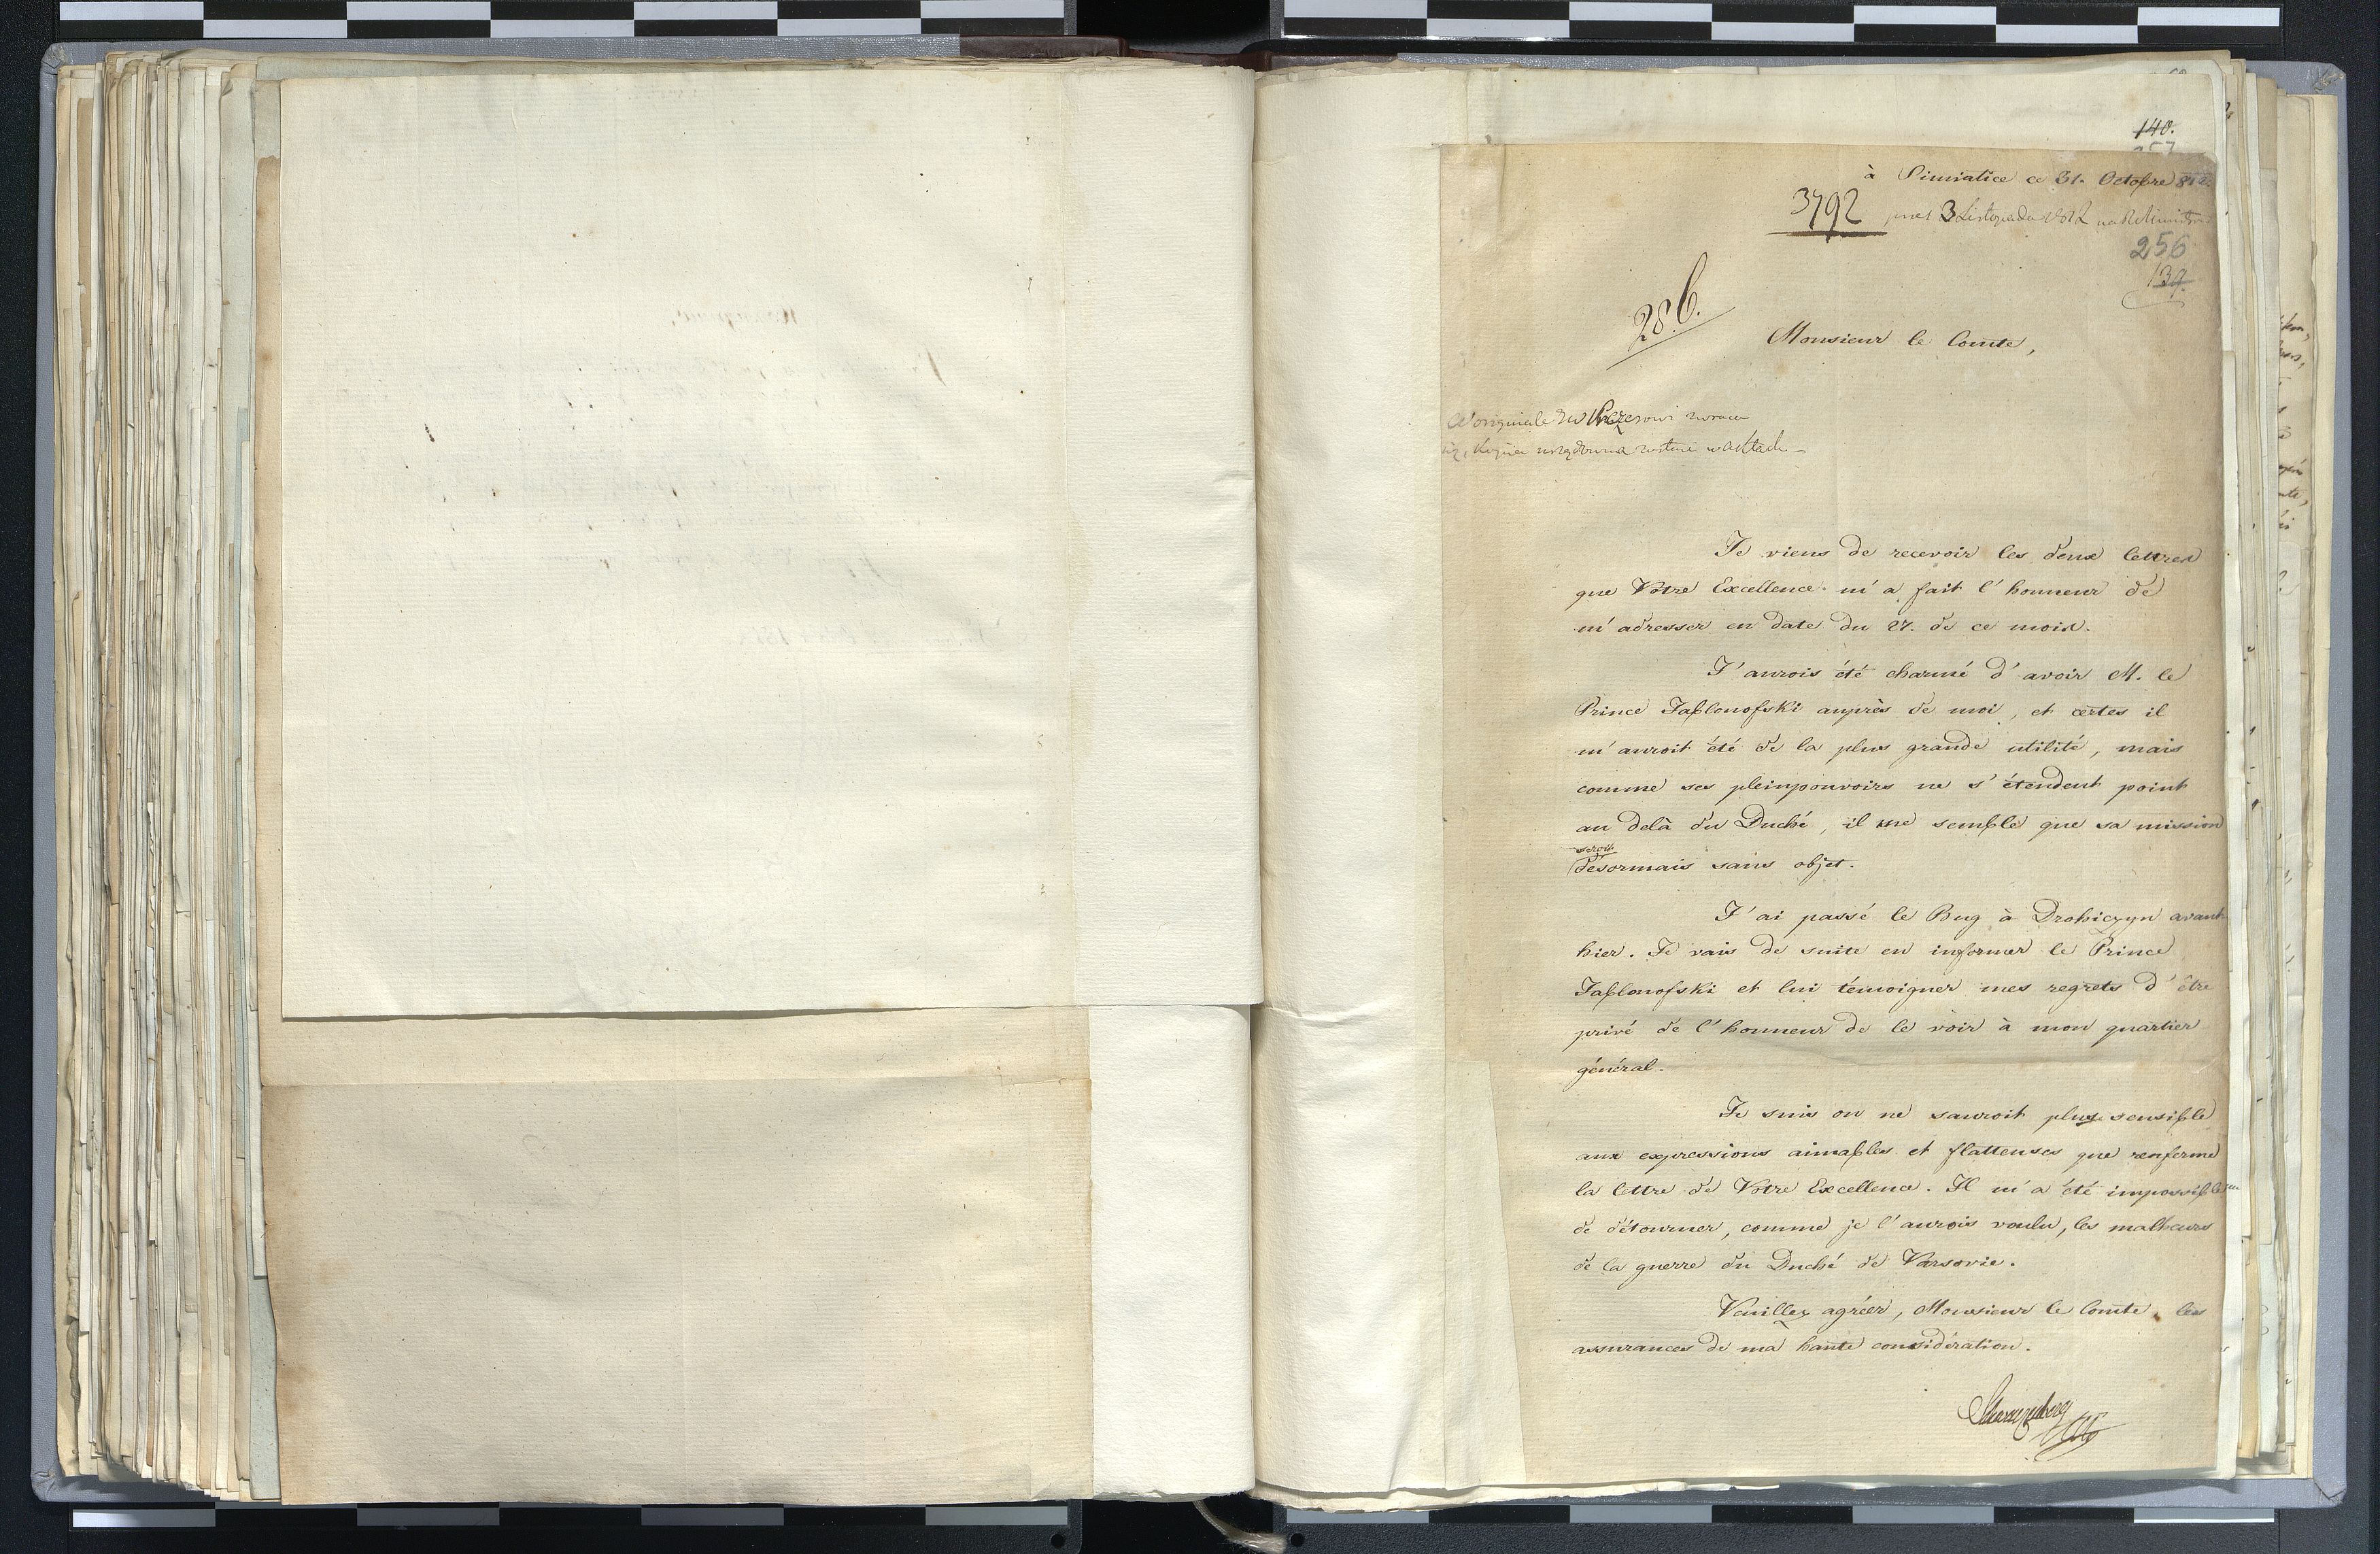 140.
à Simiatice ce 31. Octobre 812
3792 3 Listopada 1812 na R Ministrów
256
139.
286.
Monsieur le Comte,
originale JW Prezesowi zwraca
się, kopia urzędowna w aktach
Je viens de recevoir les deux lettres
que Votre Excellence m'a fait l'honneur de
m'adresser en date du 27. de ce mois.
J'aurois été charmé d'avoir M. le
Prince Jablonofski auprès de moi, et certes il
m'auroit été de la plus grande utilité, mais
comme ses pleinpouvoirs ne s'étendent point
au delà du Duché, il me semble que sa mission
seroit
désormais sans objet.
J'ai passé le Bug à Drohiczyn avant
hier. Je vais de suite en informer le Prince
Jablonofski et lui témoigner mes regrets d'être
privé de l'honneur de le voir à mon quartier
général.
Je suis on ne sauroit plus sensible
aux expressions aimables et flatteuses que renferme
la lettre de Votre Excellence. Il m'a été impossible
de détourner, comme je l'aurois voulu, les malheurs
de la guerre du Duché de Varsovie.
Veuillez agréer, Monsieur le Comte, les
assurances de ma haute considération.
Schwarzenberg